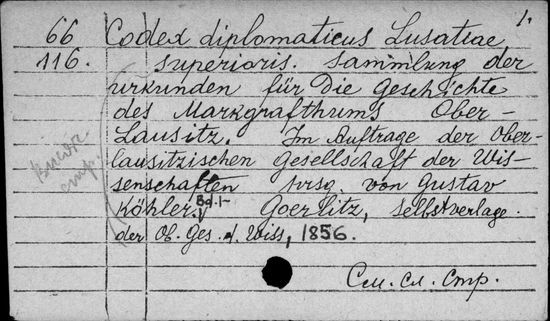 1.
66 Codex diplomaticus Lusatiae
116. superioris. Sammlung der
urkunden für Die Geschichte
des Markgrafthums Ober-
Lausitz. Im Auftrage der Ober-
lausitzischen Gesellschaft der Wis-
senschaften hrsg. von Gustav
Köhler. Bd.1- Goerlitz, Selbstverlage
der Ob. Ges. d. Wiss, 1856.
См. сл. стр.